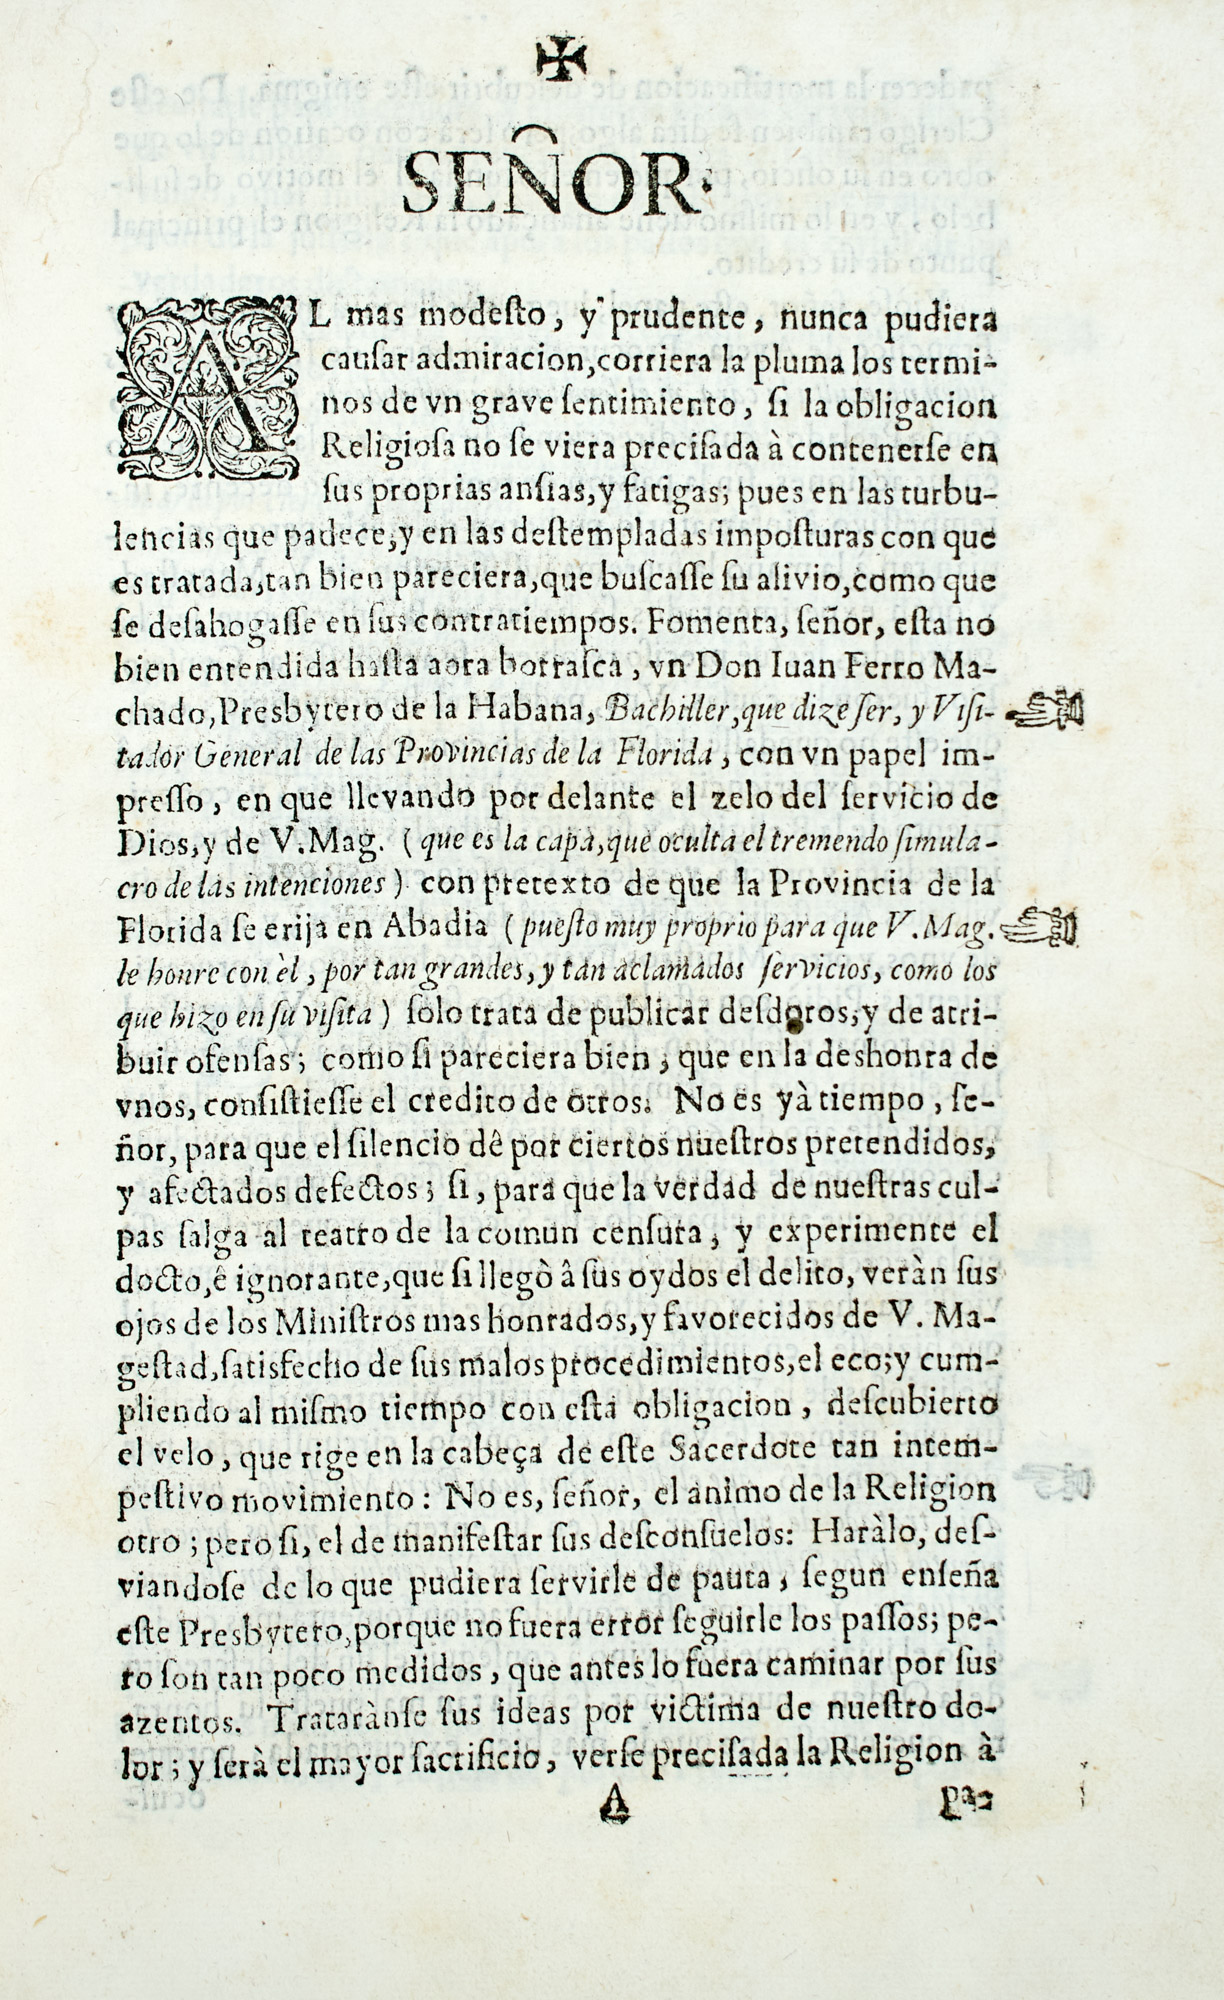 ✠
SEÑOR.
AL mas modesto, y prudente, nunca pudiera
causar admiracion, corriera la pluma los termi-
nos de vn grave sentimiento, si la obligacion
Religiosa no se viera precisada à contenerse en
sus proprias ansias, y fatigas; pues en las turbu-
lencias que padece, y en las destempladas imposturas con que
es tratada, tan bien pareciera, que buscasse su alivio, como que
se desahogasse en sus contratiempos. Fomenta, señor, esta no
bien entendida hasta aora borrasca, vn Don Iuan Ferro Ma-
chado, Presbytero de la Habana, Bachiller, que dize ser, y Visi-
tador General de las Provincias de la Florida, con vn papel im-
presso, en que llevando por delante el zelo del servicio de
Dios, y de V. Mag. (que es la capa, que oculta el tremendo simula-
cro de las intenciones) con pretexto de que la Provincia de la
Florida se erija en Abadia (puesto muy proprio para que V. Mag.
le honre con èl, por tan grandes, y tan aclamados servicios, como los
que hizo en su visita) solo trata de publicar desdoros, y de atri-
buir ofensas; como si pareciera bien, que en la deshonra de
vnos, consistiesse el credito de otros. No es yà tiempo, se-
ñor, para que el silencio dê por ciertos nuestros pretendidos,
y afectados defectos; si, para que la verdad de nuestras cul-
pas salga al teatro de la comun censura, y experimente el
docto, ê ignorante, que si llegò â sus oydos el delito, veràn sus
ojos de los Ministros mas honrados, y favorecidos de V. Ma-
gestad, satisfecho de sus malos procedimientos, el eco; y cum-
pliendo al mismo tiempo con esta obligacion, descubierto
el velo, que rige en la cabeça de este Sacerdote tan intem-
pestivo movimiento: No es, señor, el animo de la Religion
otro; pero si, el de manifestar sus desconsuelos: Haràlo, des-
viandose de lo que pudiera servirle de pauta, segun enseña
este Presbytero, porque no fuera error seguirle los passos; pe-
ro son tan poco medidos, que antes lo fuera caminar por sus
azentos. Tratarànse sus ideas por victima de nuestro do-
lor; y serà el mayor sacrificio, verse precisada la Religion à
A pa-